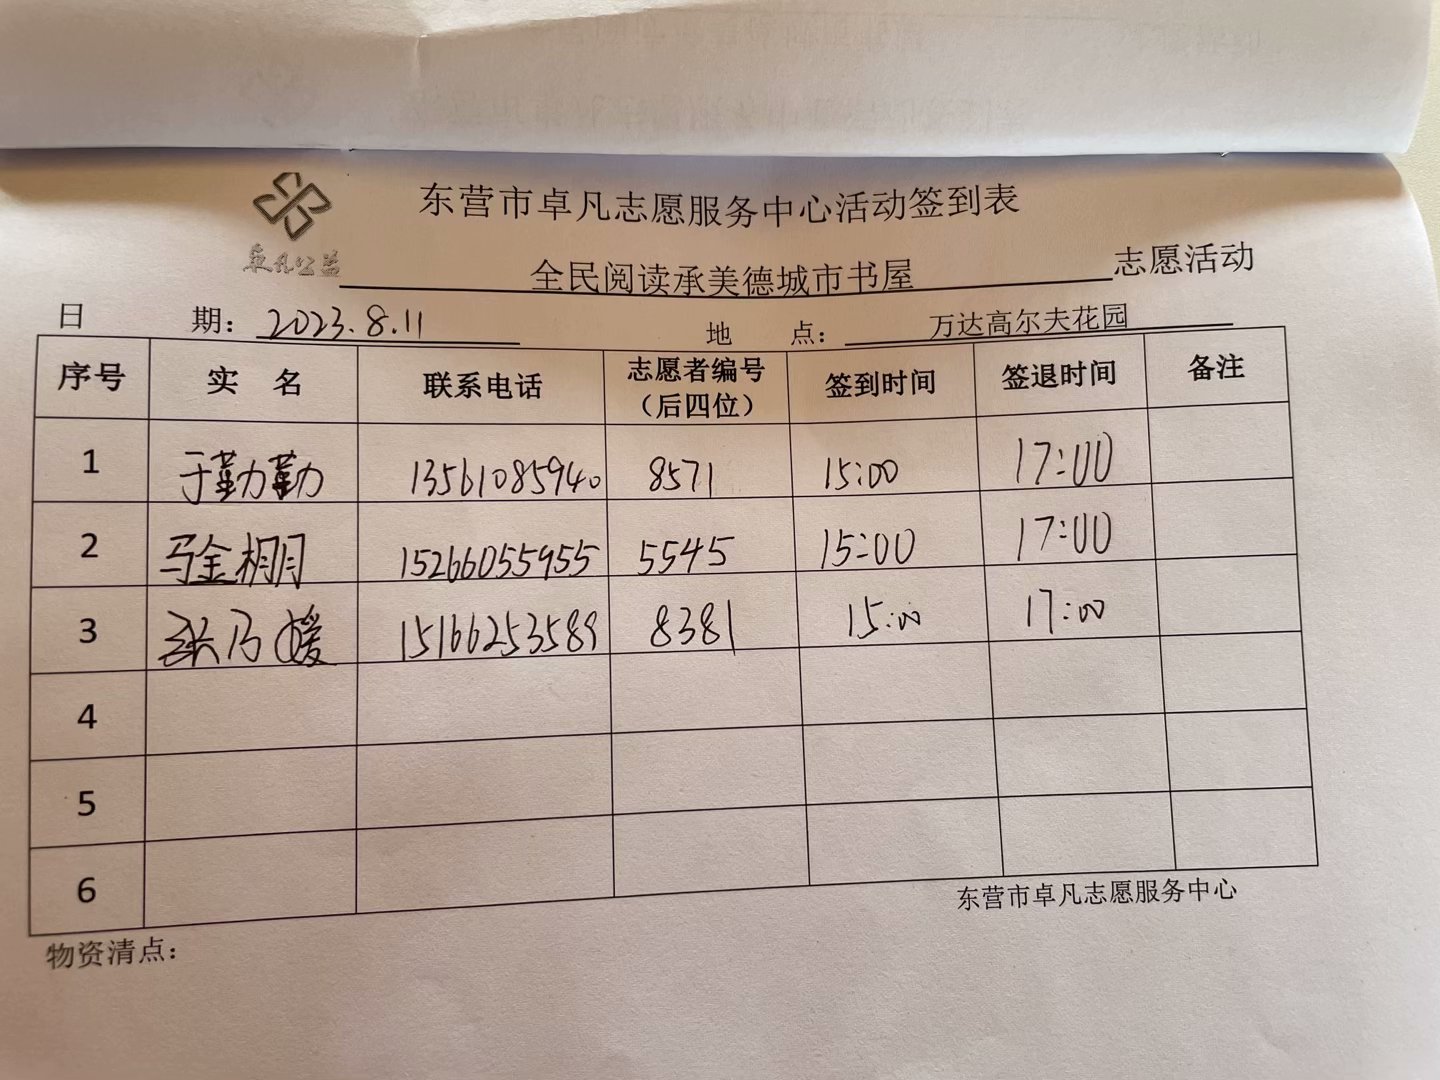 东营市卓凡志愿服务中心活动签到表
卓凡公益
全民阅读承美德城市书屋 志愿活动
日 期：2023.8.11 地 点：万达高尔夫花园
序号 实 名 联系电话 志愿者编号（后四位） 签到时间 签退时间 备注
1 于勤勤 13561085940 8571 15:00 17:00
2 马金棚 15266055955 5545 15:00 17:00
3 张乃媛 15166253589 8381 15:00 17:00
4
5
6
东营市卓凡志愿服务中心
物资清点：